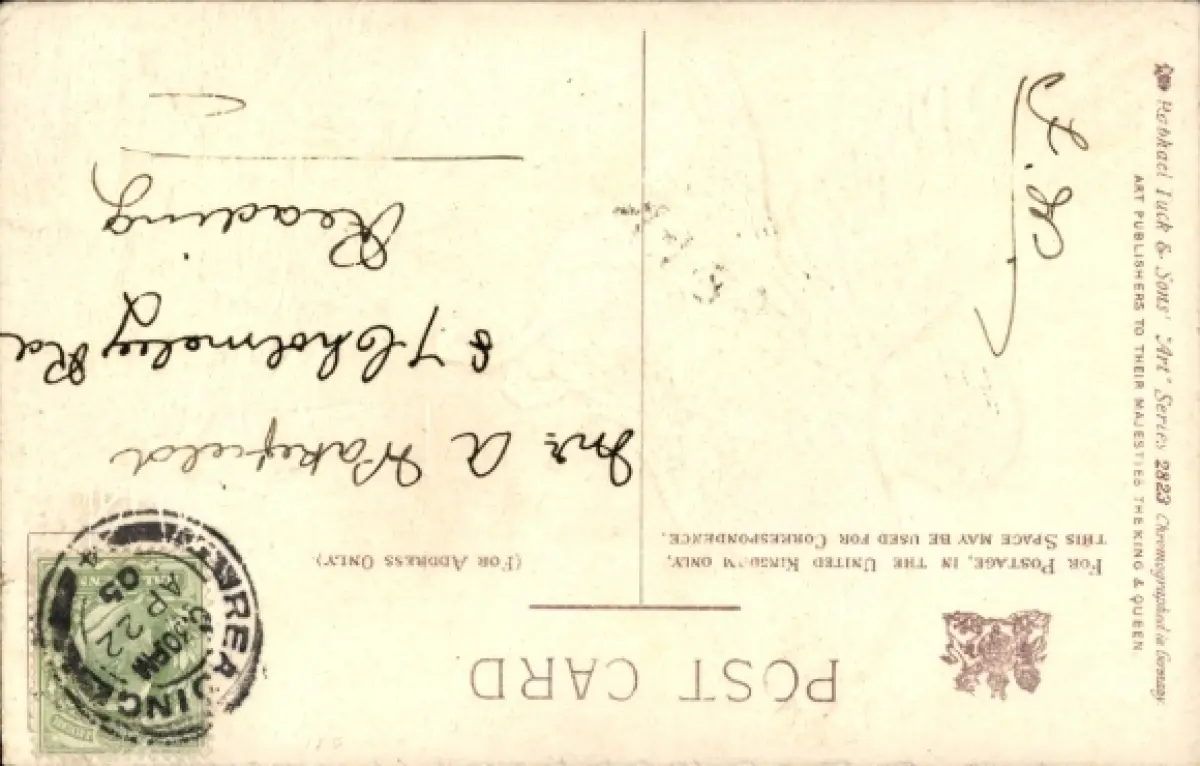 POST CARD
FOR POSTAGE, IN THE UNITED KINGDOM ONLY,
THIS SPACE MAY BE USED FOR CORRESPONDENCE.
(FOR ADDRESS ONLY)
Mr. A Wakefield
87 Cholmeley Rd
Reading
Raphael Tuck & Sons' "Art" Series 2823 Chromographed in Germany
ART PUBLISHERS TO THEIR MAJESTIES THE KING & QUEEN.
READING
8.30PM
AP 22
05
4